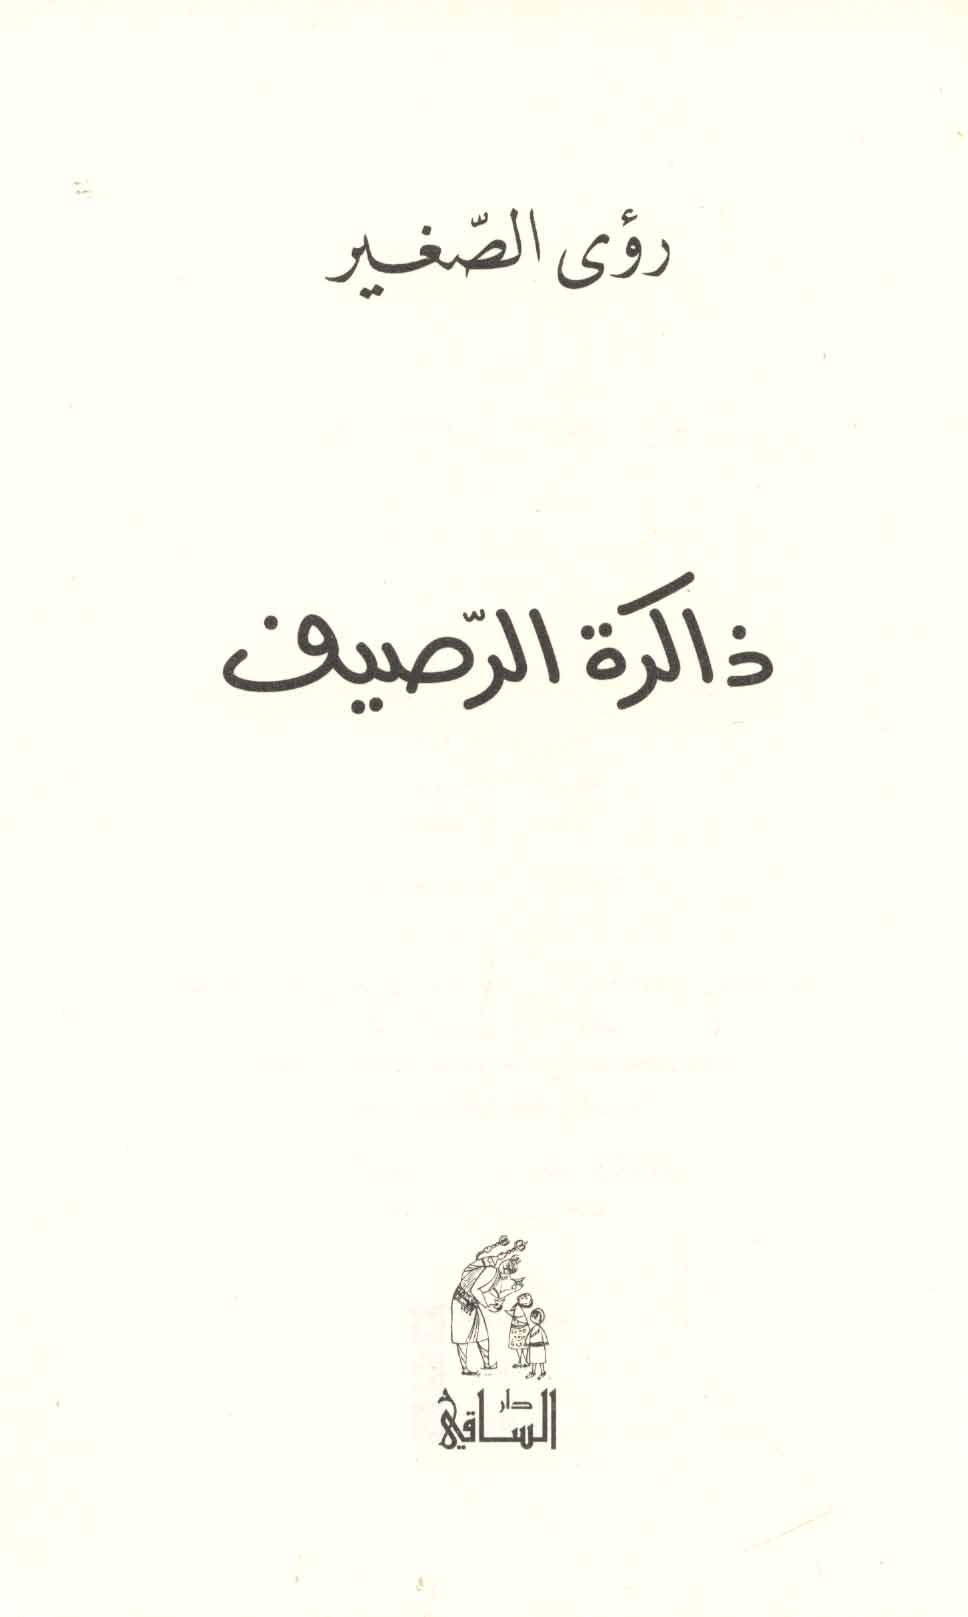 رؤى الصّغير
ذاكرة الرّصيف
دار
الساقي